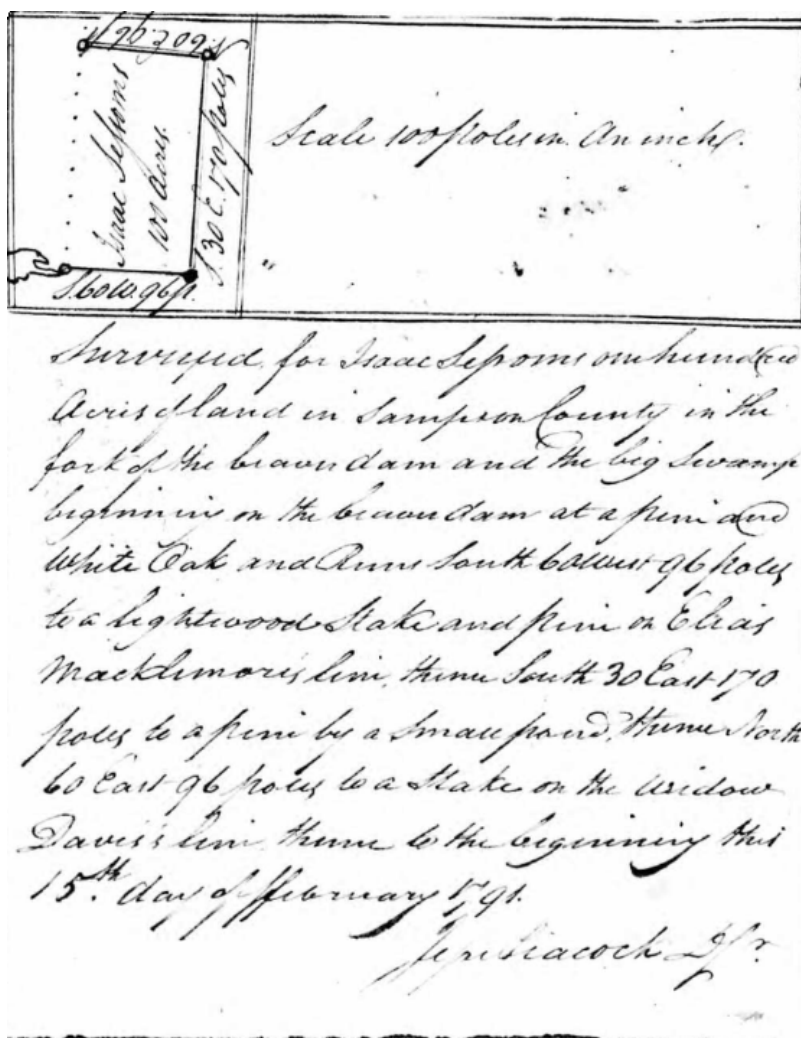 N. 60 E. 96 p.
Isaac Sessoms
100 Acres.
S. 30 E. 170 poles
S. 60 W. 96 p.
Scale 100 poles in An inch.
Surveyed for Isaac Sessoms one hundred
Acres of land in Sampson County in the
fork of the beaver dam and the big Swamp
beginning on the beaver dam at a pine and
White Oak and Runs South 60 west 96 poles
to a lightwood Stake and pine on Elias
Macklemore's line, thence South 30 East 170
poles to a pine by a Small pond, thence North
60 East 96 poles to a Stake on the widow
Davis's line thence to the beginning this
15.th day of ffebruary 1791.
Jesse Peacock D. Sr.